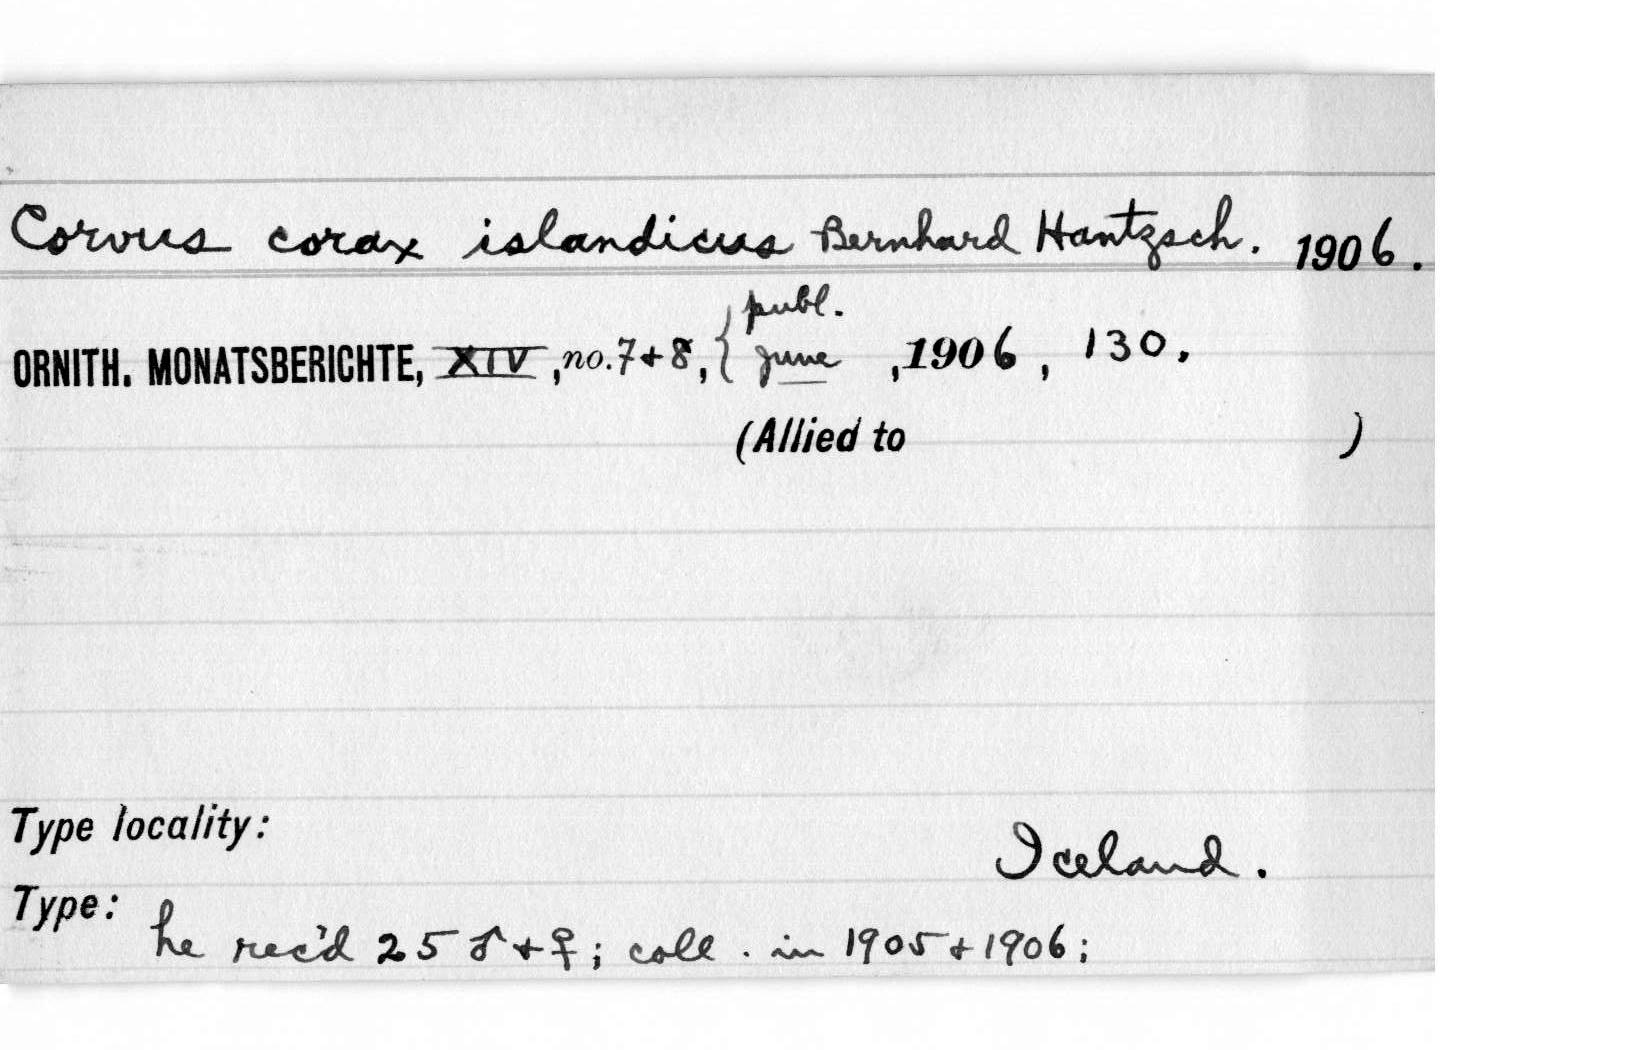 Corvus corax islandicus Bernhard Hantzsch. 1906.
publ.
ORNITH. MONATSBERICHTE, XIV, no. 7+8, { june, 1906, 130.
(Allied to )
Type locality:
Iceland.
Type: he rec'd 25 ♂+♀; coll. in 1905+1906;